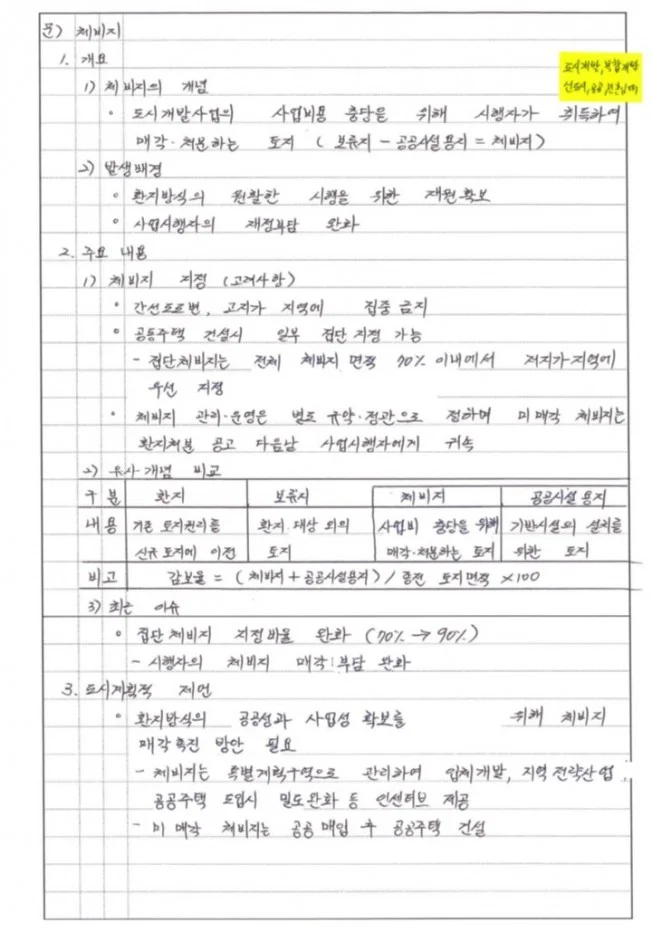 문) 체비지
1. 개요
도시개발, 복합개발
1) 체비지의 개념
• 도시개발사업의 사업비용 충당을 위해 시행자가 취득하여
매각·처분하는 토지 ( 보류지 - 공공시설용지 = 체비지 )
2) 발생배경
• 환지방식의 원활한 시행을 위한 재원확보
• 사업시행자의 재정부담 완화
2. 주요 내용
1) 체비지 지정 (고려사항)
• 간선도로변, 고지가 지역에 집중 금지
• 공동주택 건설시 일부 집단 지정 가능
- 집단체비지는 전체 체비지 면적 70% 이내에서 저지가 지역에
우선 지정
• 체비지 관리·운영은 별도 규약·정관으로 정하며 미매각 체비지는
환지처분 공고 다음날 사업시행자에게 귀속
2) 유사개념 비교
구분 환지 보류지 체비지 공공시설 용지
내용 기존 토지권리를 환지 대상 외의 사업비 충당을 위해 기반시설의 설치를
신규 토지에 이전 토지 매각·처분하는 토지 위한 토지
비고 감보율 = ( 체비지 + 공공시설용지 ) / 종전 토지면적 ×100
3) 최근 이슈
• 집단체비지 지정비율 완화 (70% → 90%)
- 시행자의 체비지 매각 부담 완화
3. 도시계획적 제언
• 환지방식의 공공성과 사업성 확보를 위해 체비지
매각촉진 방안 필요
- 체비지는 특별계획구역으로 관리하여 입체개발, 지역전략산업,
공공주택 도입시 밀도완화 등 인센티브 제공
- 미매각 체비지는 공공 매입 후 공공주택 건설